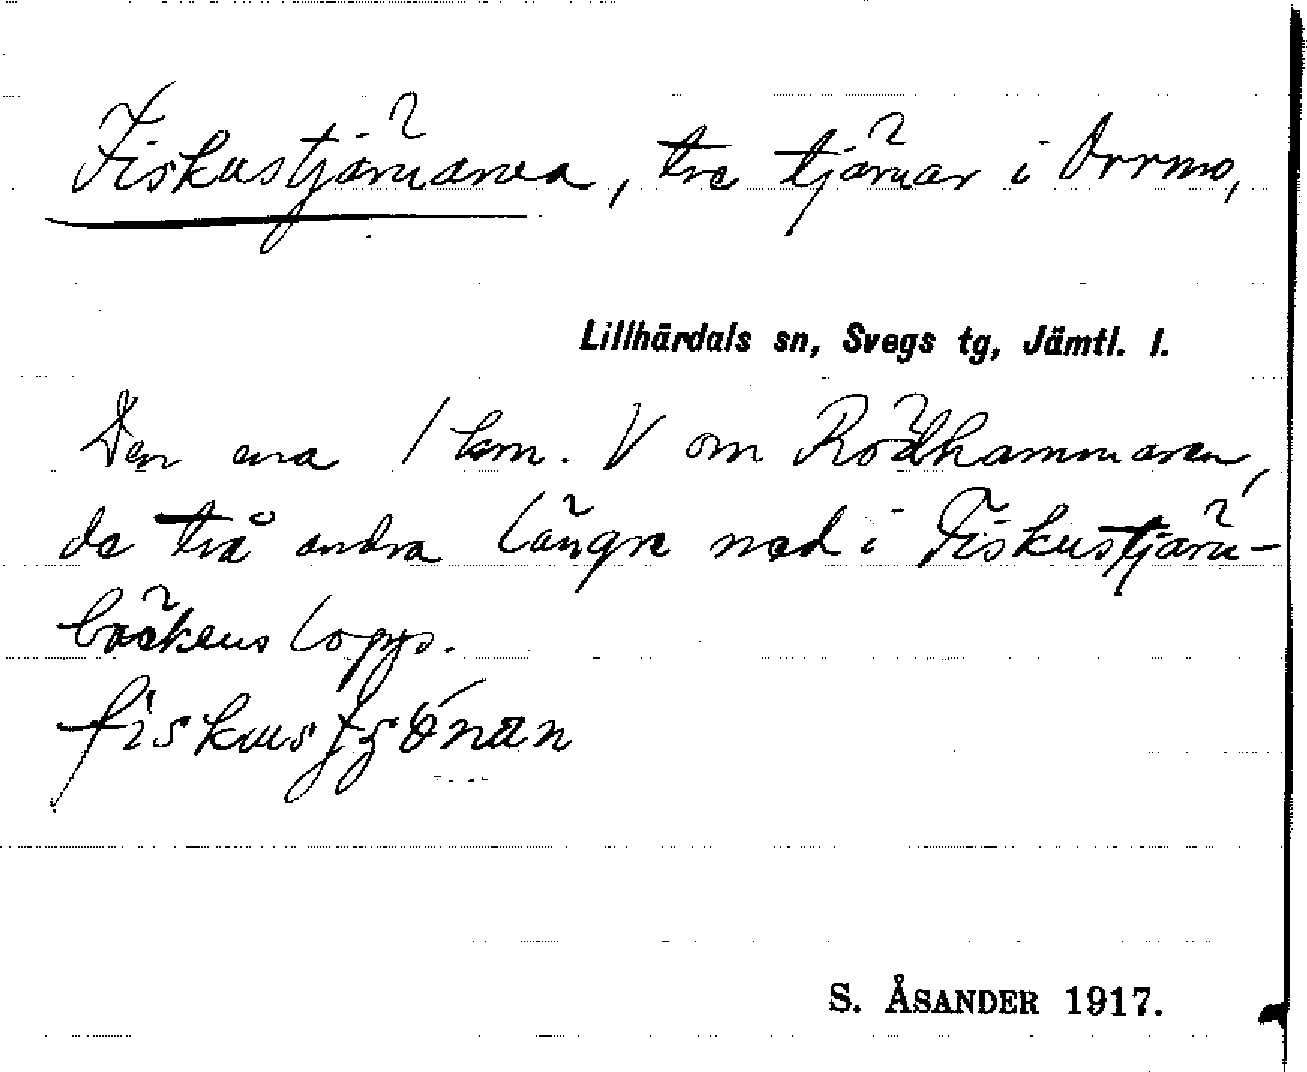 Fiskustjärnarna, tre tjärnar i Orrmo,
Lillhärdals sn, Svegs tg, Jämtl. l.
Den ena 1 km. V om Rödhammaren,
de två andra längre ned i Fiskustjärn-
bäckens lopp.
S. ÅSANDER 1917.